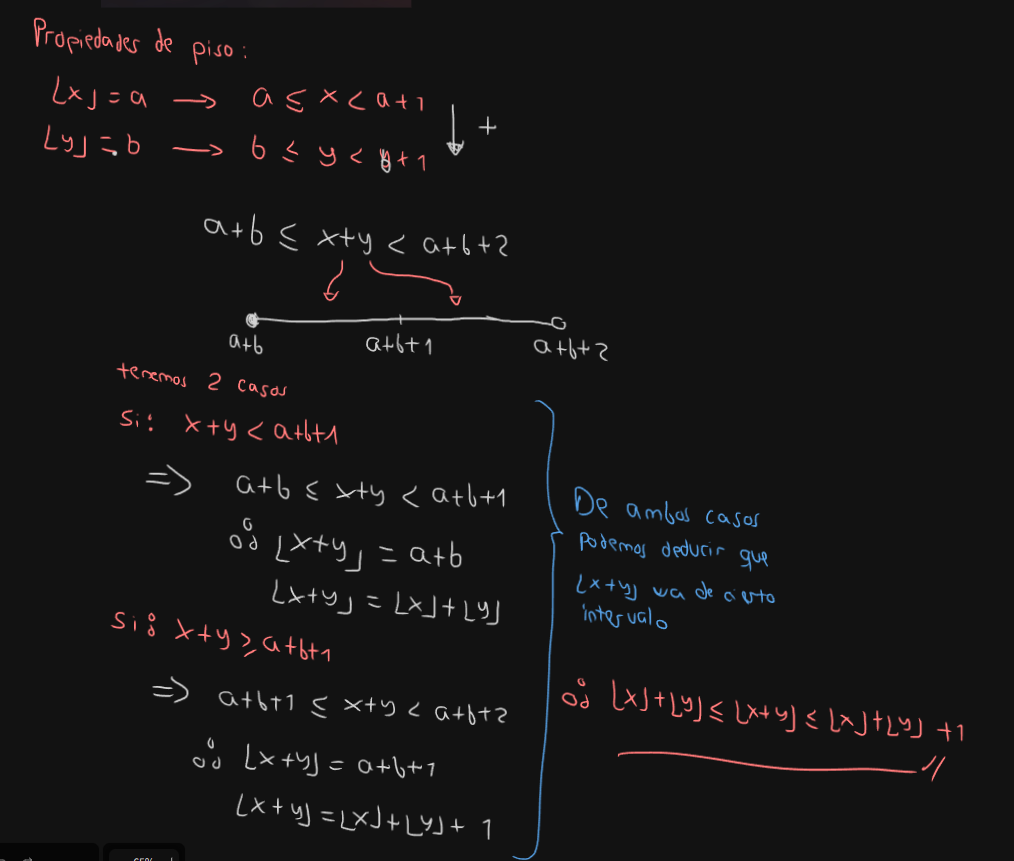 Propiedades de piso:
⌊x⌋ = a → a ≤ x < a+1
⌊y⌋ = b → b ≤ y < b+1
+
a+b ≤ x+y < a+b+2
a+b a+b+1 a+b+2
tenemos 2 casos
Si: x+y < a+b+1
=> a+b ≤ x+y < a+b+1
∴ ⌊x+y⌋ = a+b
⌊x+y⌋ = ⌊x⌋+⌊y⌋
Si: x+y ≥ a+b+1
=> a+b+1 ≤ x+y < a+b+2
∴ ⌊x+y⌋ = a+b+1
⌊x+y⌋ = ⌊x⌋+⌊y⌋+ 1
De ambos casos
Podemos deducir que
⌊x+y⌋ va de cierto
intervalo
∴ ⌊x⌋+⌊y⌋ ≤ ⌊x+y⌋ ≤ ⌊x⌋+⌊y⌋ +1